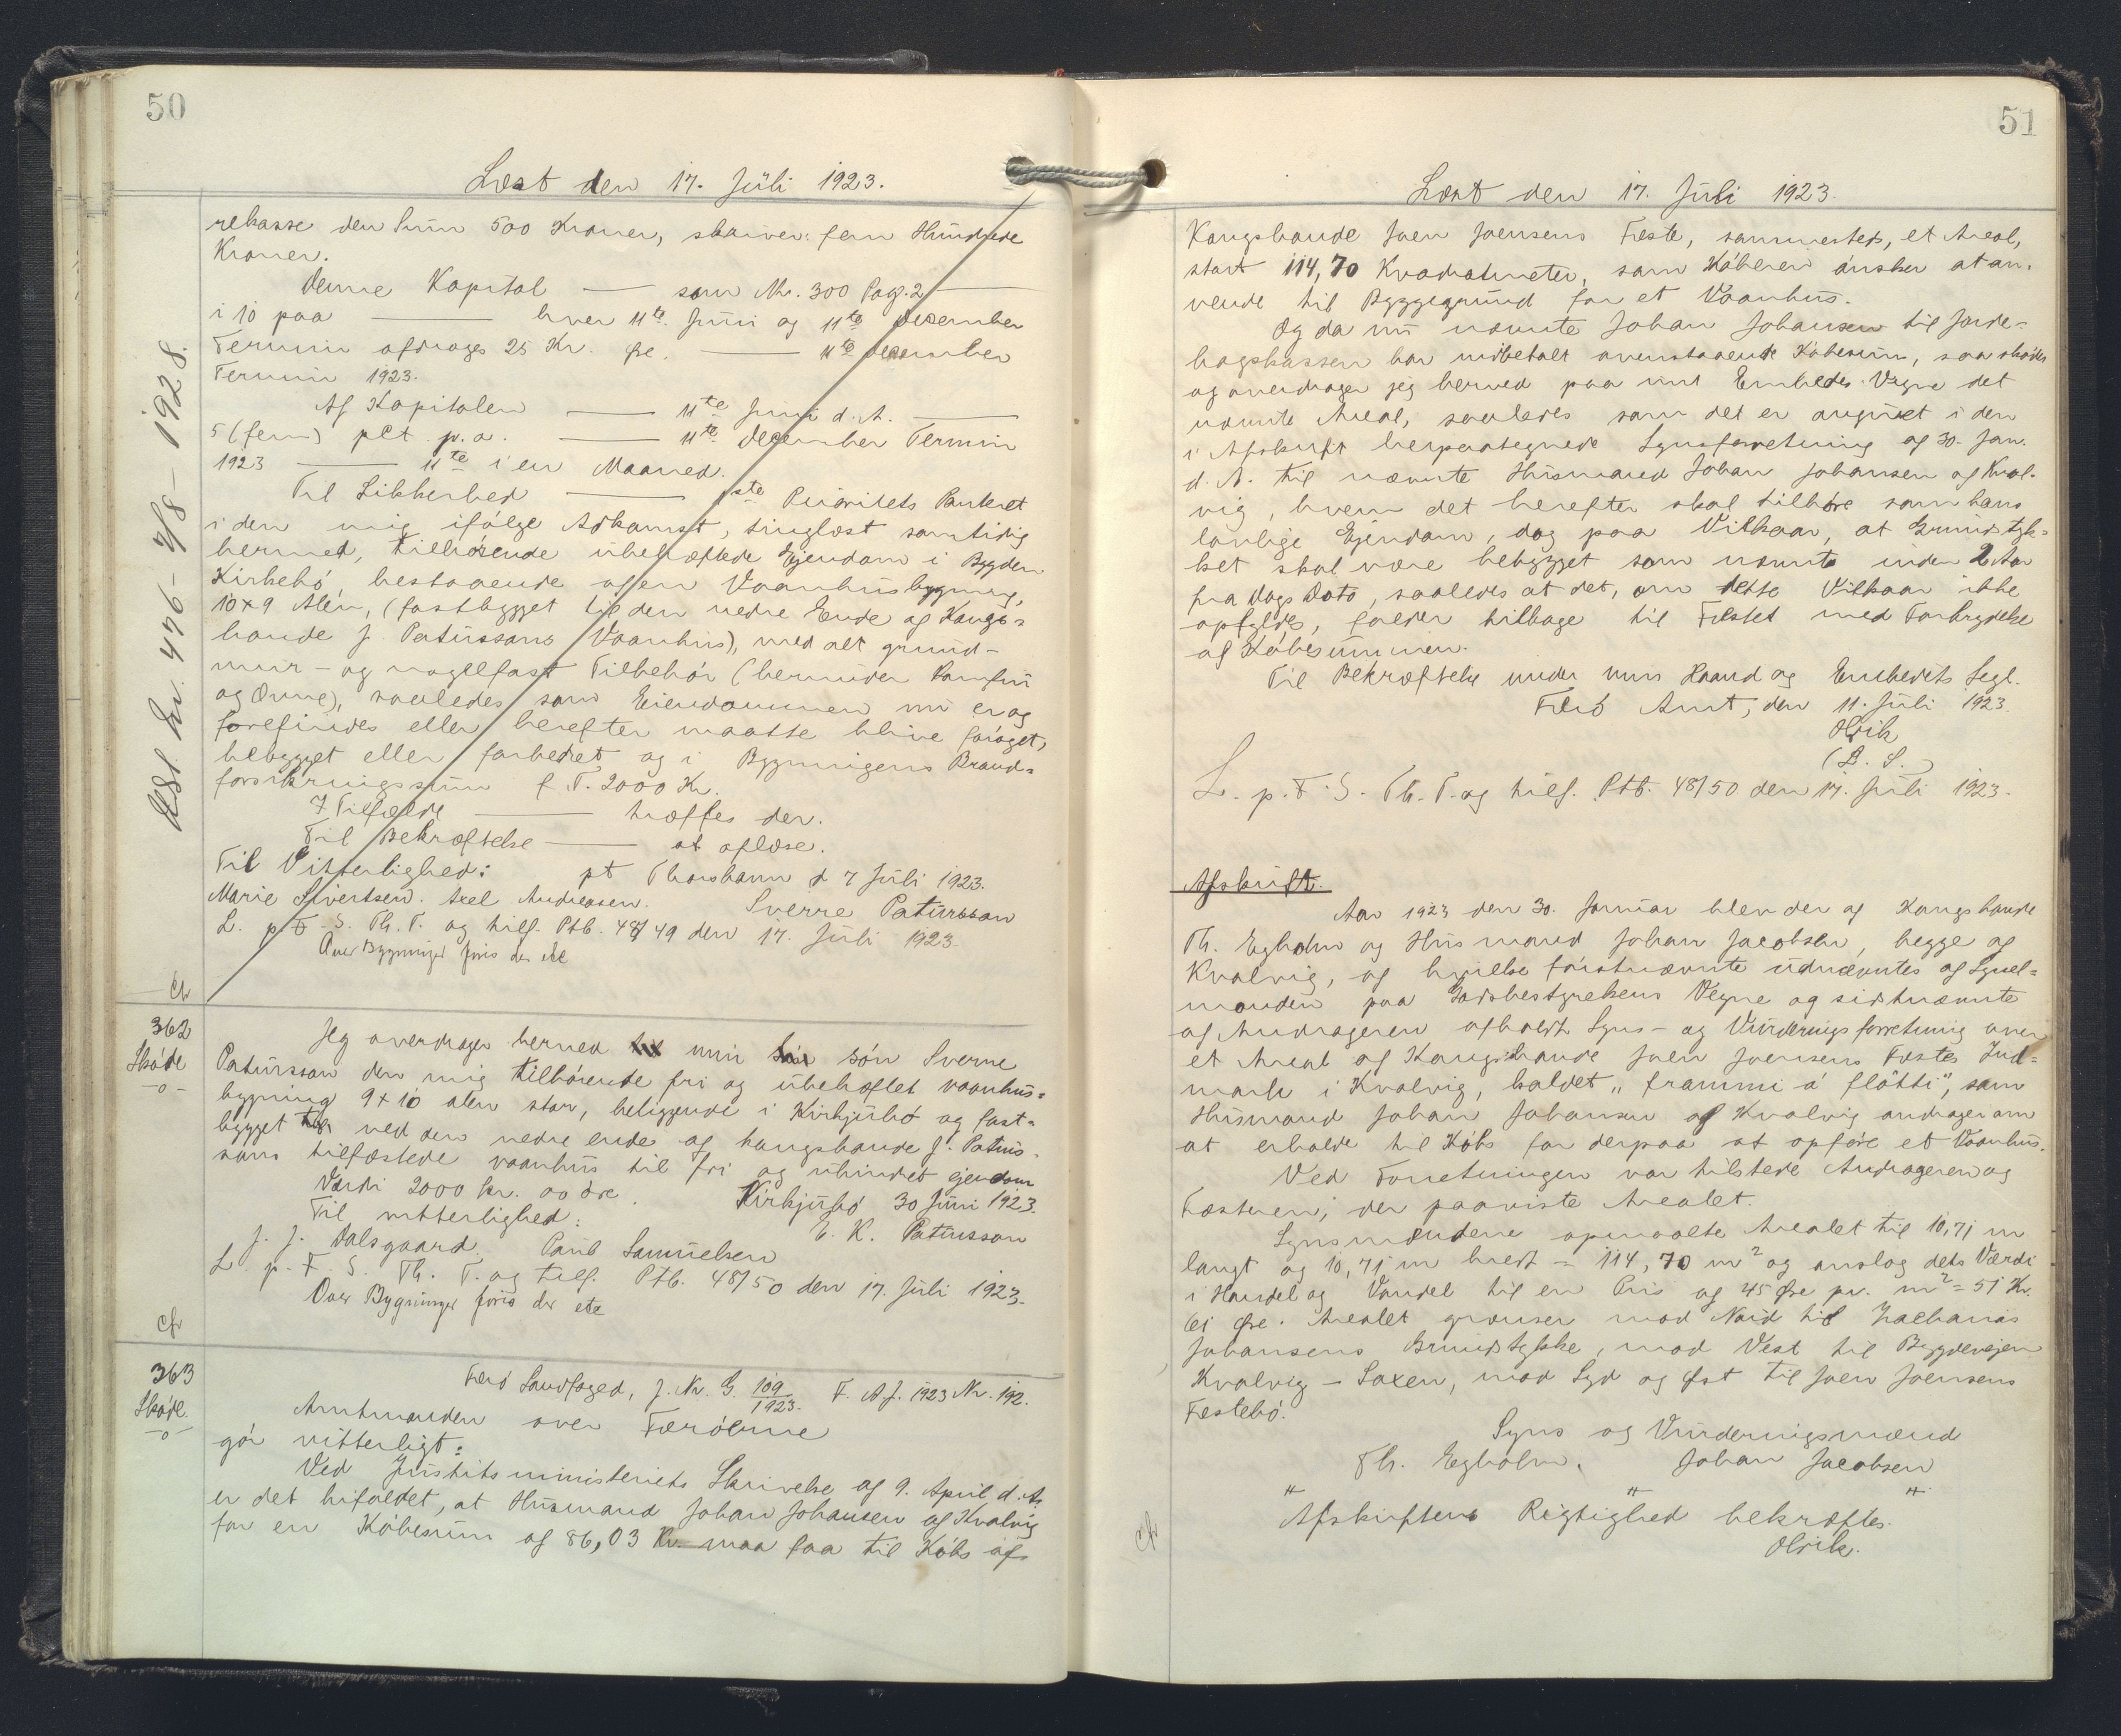 50
Læst den 17. Juli 1923.
rekasse den Sum 500 Kroner, skriver: fem Hundrede
Kroner.
Denne Kapital — som Nr. 300 Pag. 2 —
i 10 paa — hver 11te Juni og 11te December
Termin afdrages 25 Kr. Øre. — 11te December
Termin 1923.
Af Kapitalen — 11te Juni d. A. —
5 (fem) pCt. p. a. — 11te December Termin
1923 — 11te i en Maaned.
Til Sikkerhed — 1ste Prioritets Panteret
i den mig ifølge Adkomst, tinglæst samtidig
hermed, tilhørende ubehæftede Ejendom i Bygden
Kirkebø, bestaaende af en Vaanhusbygning,
10x9 Alen, (fastbygget til den nedre Ende af Kongs=
bonde J. Paturssons Vaanhus), med alt grund-
mur- og nagelfast Tilbehør (herunder Komfur
og Ovne), saaledes som Eiendommen nu er og
forefindes eller herefter maatte blive forøget,
bebygget eller forbedret og i Bygningens Brand=
forsikringssum f. T. 2000 Kr.
I Tilfælde — træffes der.
Til Bekræftelse — at aflæse.
Til Vitterlighed: pt Thorshavn d 7 Juli 1923.
Marie Sivertsen. Axel Andreasen. Sverre Patursson
L. p. F. S. Th. T. og tilf. Ptb. 48/49 den 17. Juli 1923.
Over Bygninger føris der ikke
Cfr
Udsl. En. 476 - 7/8 - 1928.
362
Skøde
-o-
Jeg overdrager herved til min søn Sverre
Patursson den mig tilhørende fri og ubehæftet vaanhus=
bygning 9x10 alen stor, beliggende i Kirkjubø og fast=
bygget ved den nedre ende af kongsbonde J. Paturs-
sons tilfæstede vaanhus til fri og uhindret ejendom
Værdi 2000 kr. 00 øre. Kirkjubø 30 Juni 1923.
Til vitterlighed: E. K. Patursson
J. J. Dalsgaard. Paul Samuelsen
L. p. F. S. Th. T. og tilf. Ptb. 48/50 den 17. Juli 1923.
Over Bygninger føris der ikke
Cfr
363
Skøde.
-o-
Færø Landfoged, J. Nr. G. 109/1923. F. A. J. 1923 Nr. 192.
Amtmanden over Færøerne
gør vitterligt:
Ved Justitsministeriets Skrivelse af 9. April d. A.
er det bifaldet, at Husmand Johan Johansen af Kvalvig
for en Købesum af 86,03 Kr. maa faa til Købs af
51
Læst den 17. Juli 1923.
Kongsbonde Joen Joensens Fæste, sammesteds, et Areal,
stort 114,70 Kvadratmeter, som Køberen ønsker at an-
vende til Byggegrund for et Vaanhus.
Og da nu nævnte Johan Johansen til Jorde=
bogskassen har indbetalt ovenstaaende Købesum, saa skøder
og overdrager jeg herved paa mit Embedes Vegne det
nævnte Areal, saaledes som det er angivet i den
i Afskrift herpaategnede Synsforretning af 30. Jan.
d. A. til nævnte Husmand Johan Johansen af Kval-
vig, hvem det herefter skal tilhøre som hans
lovlige Ejendom, dog paa Vilkaar, at Grundstyk=
ket skal være bebygget som nævnte inden 2 Aar
fra Dags Dato, saaledes at det, om dette Vilkaar ikke
opfyldes, falder tilbage til Fæstet med Fortrydelse
af Købesummen.
Til Bekræftelse under min Haand og Embedets Segl.
Færø Amt, den 11. Juli 1923.
Olrik
(L. S.)
L. p. F. S. Th. T. og tilf. Ptb. 48/50 den 17. Juli 1923.
Afskrift.
Aar 1923 den 30. Januar blev der af Kongsbonde
Th. Egholm og Husmand Johan Jacobsen, begge af
Kvalvig, af hvilke førstnævnte udnævntes af Syssel=
manden paa Jordbestyrelsens Vegne og sidstnævnte
af Andrageren afholdt Syns- og Vurderingsforretning over
et Areal af Kongsbonde Joen Joensens Fæstes Ind=
mark i Kvalvig, kaldet „frammi á fløtti“, som
Husmand Johan Johansen af Kvalvig andrager om
at erholde til Købs for derpaa at opføre et Vaanhus.
Ved Forretningen var tilstede Andrageren og
Fæsteren, der paaviste Arealet.
Synsmændene opmaalte Arealet til 10,71 m
langt og 10,71 m bredt = 114,70 m² og anslog dets Værdi
i Handel og Vandel til en Pris af 45 Øre pr. m² = 51 Kr.
61 Øre. Arealet grænser mod Nord til Zacharias
Johansens Grundstykke, mod Vest til Bygdevejen
Kvalvig - Saxen, mod Syd og Øst til Joen Joensens
Fæstebø.
Syns og Vurderingsmænd
Th. Egholm. Johan Jacobsen
Afskriftens Rigtighed bekræftes.
Olrik.
Cfr